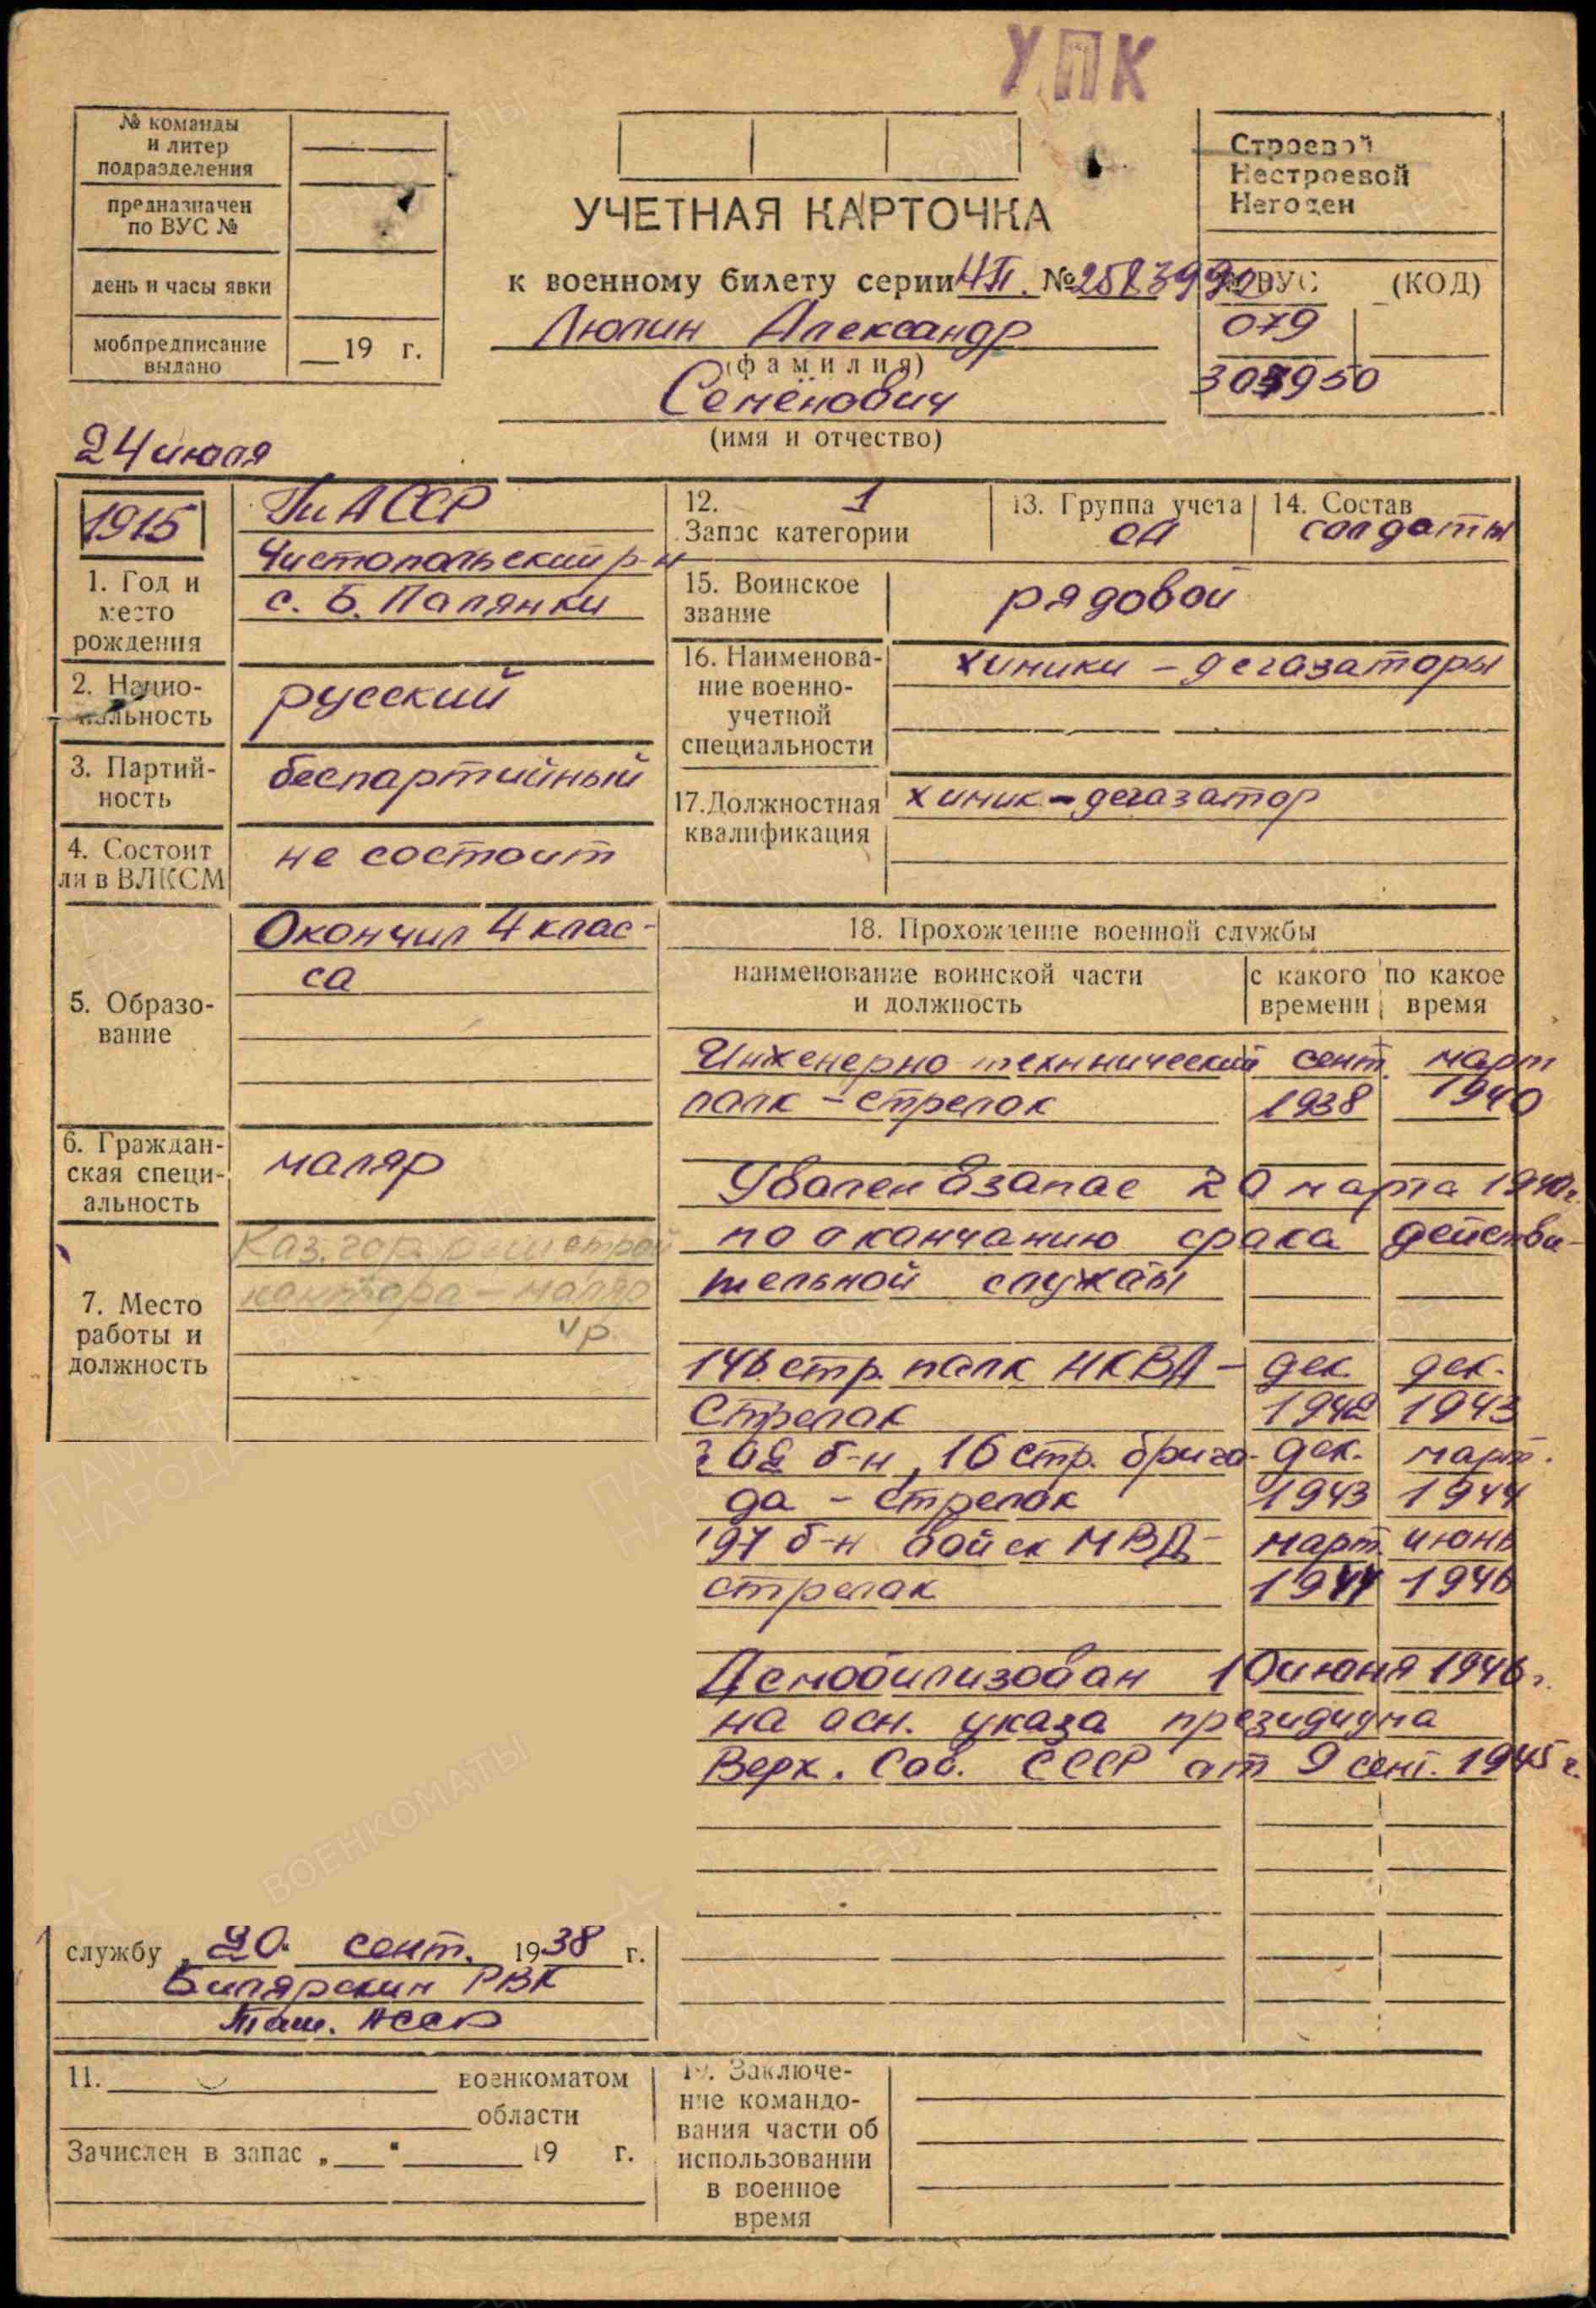 УПК
№ команды
и литер
подразделения
предназначен
по ВУС №
день и часы явки
мобпредписание
выдано
19 г.
Строевой
Нестроевой
Негоден
УЧЕТНАЯ КАРТОЧКА
к военному билету серии НП. №
ВУС (КОД)
079
Люлин Александр
(фамилия)
Семёнович
(имя и отчество)
24 июля
1915
1. Год и
место
рождения
АССР
Чистопольский р-н
с. Б. Полянки
2. Нацио-
нальность
русский
3. Партий-
ность
беспартийный
4. Состоит
ли в ВЛКСМ
не состоит
5. Образо-
вание
Окончил 4 клас-
са
6. Граждан-
ская специ-
альность
маляр
7. Место
работы и
должность
Каз. гор. ремстрой
контора – маляр
12. 1
Запас категории
13. Группа учета
СА
14. Состав
солдаты
15. Воинское
звание
рядовой
16. Наименова-
ние военно-
учетной
специальности
химики – дегазаторы
17. Должностная
квалификация
химик – дегазатор
18. Прохождение военной службы
наименование воинской части
и должность
с какого
времени
по какое
время
Инженерно-техннический сент. март
полк – стрелок 1938 1940
Уволен в запас 20 марта 1940г.
по окончанию срока действи-
тельной службы
146 стр. полк НКВД – дек. дек.
Стрелок 1942 1943
б-н, 16 стр. брига- дек. март.
да – стрелок 1943 1944
197 б-н войск МВД – март. июнь
стрелок 1944 1946
Демобилизован 10 июня 1946г.
на осн. указа президиума
Верх. Сов. СССР от 9 сент. 1945г.
службу 20. сент. 1938 г.
Билярским РВК
АССР
11. военкоматом
области
Зачислен в запас „ “ 19 г.
19. Заключе-
ние командо-
вания части об
использовании
в военное
время
ПАМЯТЬ
НАРОДА
ВОЕНКОМАТЫ